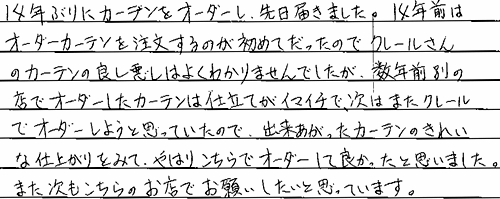 14年ぶりにカーテンをオーダーし、先日届きました。14年前は
オーダーカーテンを注文するのが初めてだったのでクレールさん
のカーテンの良し悪しはよくわかりませんでしたが、数年前別の
店でオーダーしたカーテンは仕立てがイマイチで、次はまたクレール
でオーダーしようと思っていたので、出来あがったカーテンのきれい
な仕上がりをみて、やはりこちらでオーダーして良かったと思いました。
また次もこちらのお店でお願いしたいと思っています。